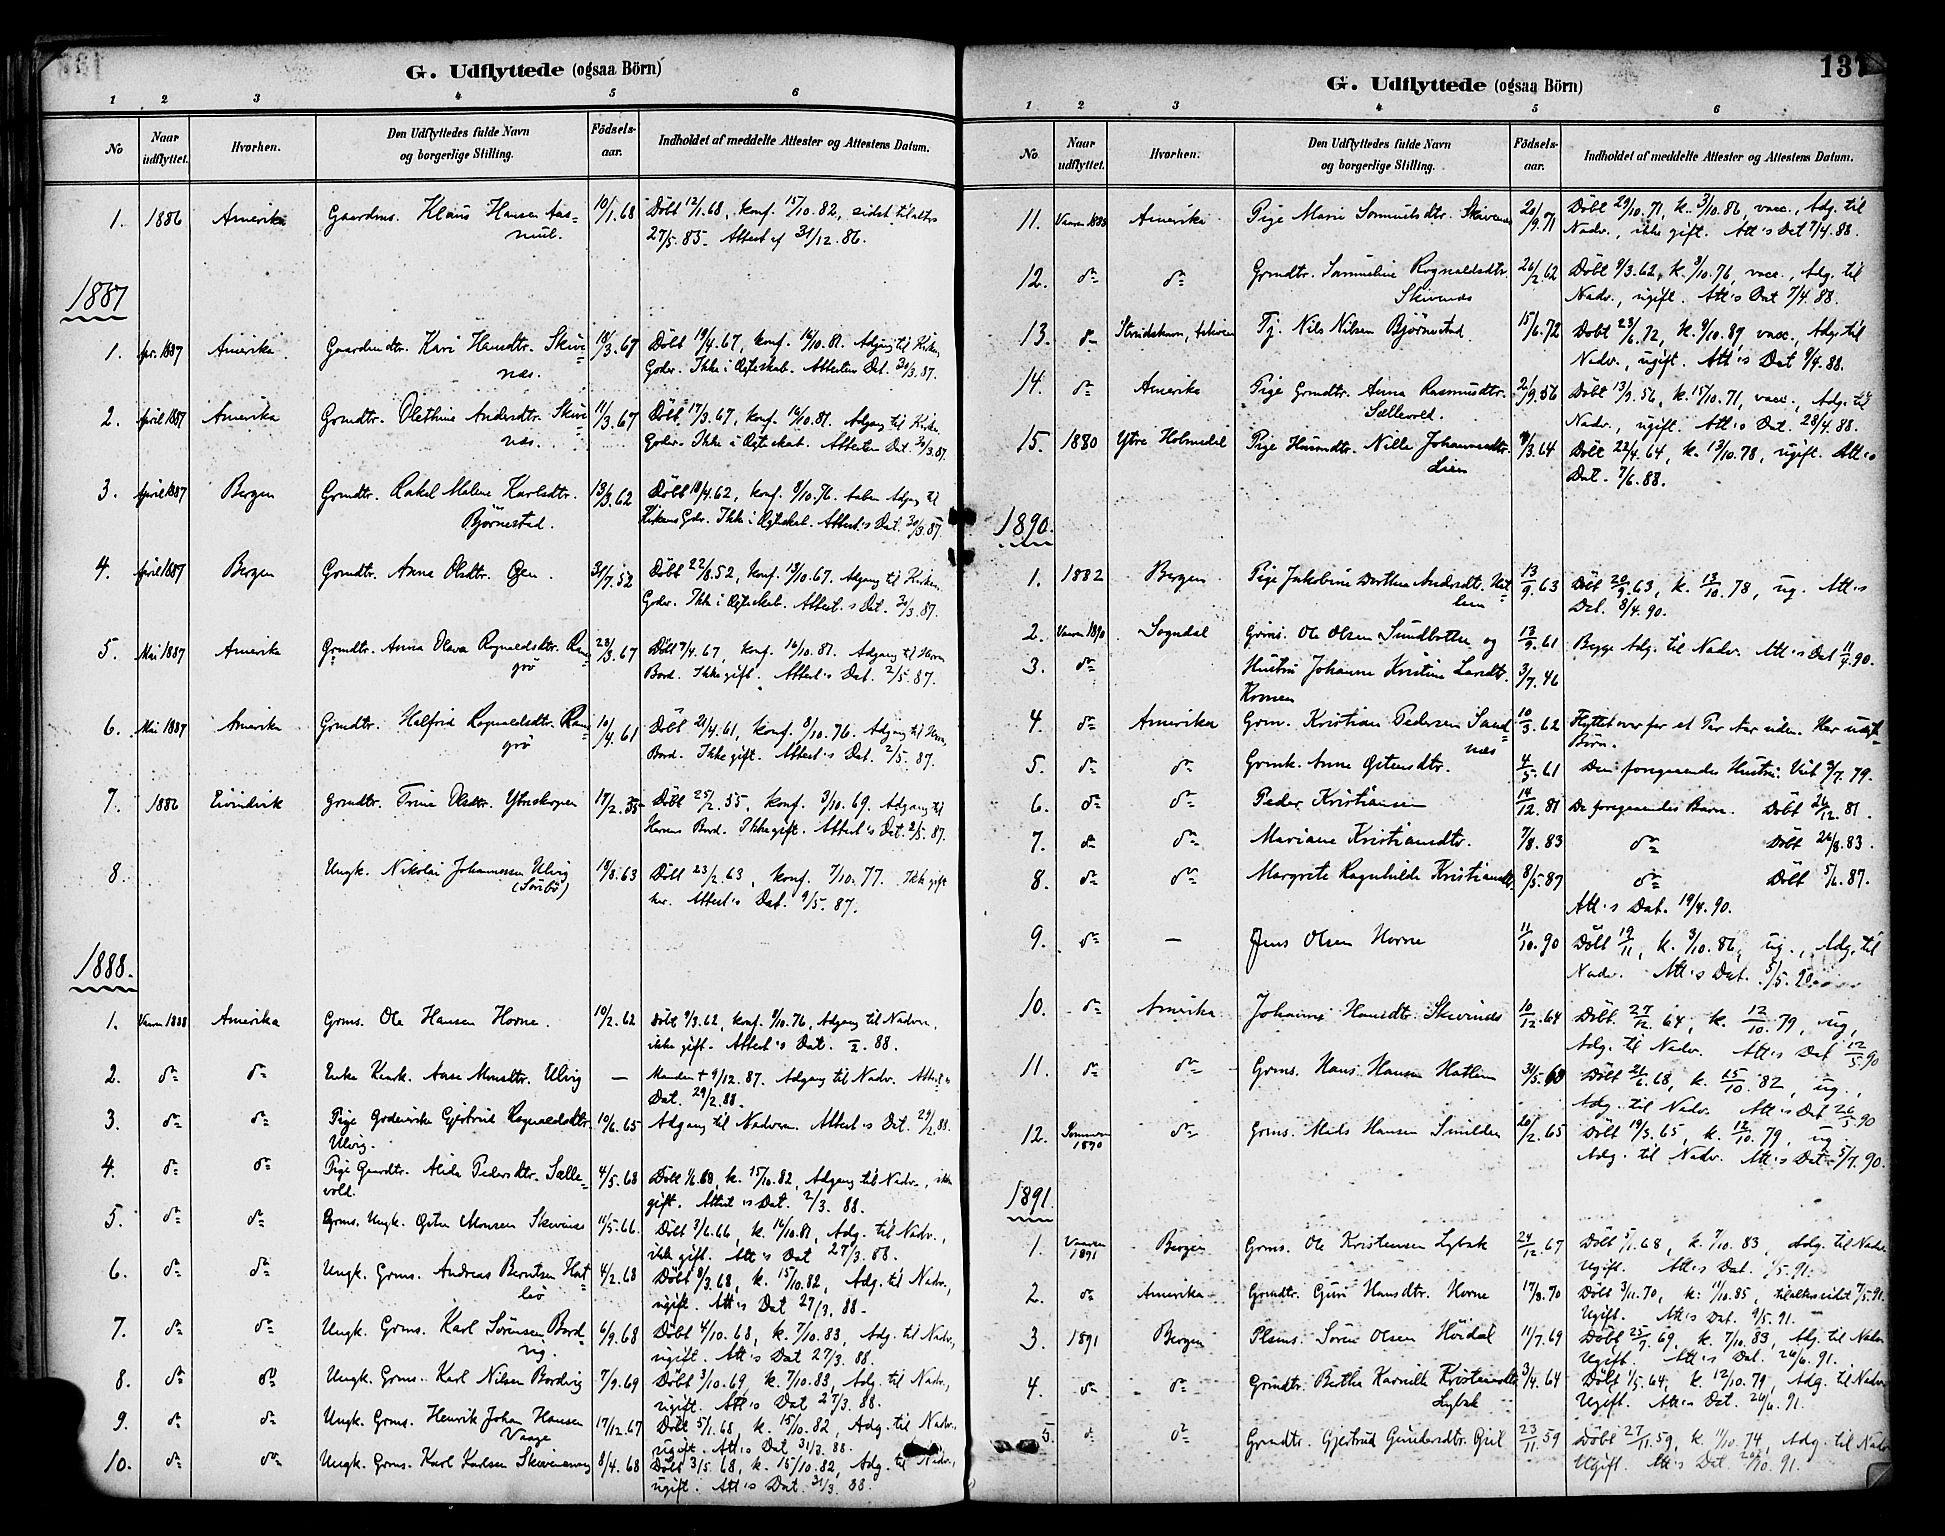 G. Udflyttede (ogsaa Börn)
1 2 3 4 5 6
No Naar udflyttet. Hvorhen. Den Udflyttedes fulde Navn og borgerlige Stilling. Födsels-aar. Indholdet af meddelte Attester og Attestens Datum.
1. 1886 Amerika Gaardms. Klaus Hansen Aas- 10/1.68 Döbt 12/1.68, konf. 15/10.82, sidst tilalters
27/5.85. Attest af 31/12.86.
1887
1. Apr. 1887 Amerika Gaardmdtr. Kari Hansdtr. Skivi- 18/3.67 Döbt 19/4.67, konf. 16/10.81. Adgang til Kirkens
næs. Goder. Ikke i Ægteskab. Attestens Dat. 30/3.87.
2. April 1887 Amerika Grmdtr. Olethine Andersdtr. Skivi 11/3.67 Döbt 17/3.67, konf. 16/10.81. Adgang til Kirkens
næs. Goder. Ikke i Ægteskab. Attesten Dat. 30/3.87.
3. April 1887 Bergen Grmdtr. Rakel Malene Karlsdtr. 13/3.62 Döbt 18/4.62, konf. 8/10.76. Aaben Adgang til
Björnestad. Kirkens Goder. Ikke i Ægteskab. Attest's Dat. 30/3.87.
4. April 1887 Bergen Grmdtr. Anna Olsdtr. Öen. 31/7.52 Döbt 22/8.52, konf. 13/10.67. Adgang til Kirkens
Goder. Ikke i Ægteskab. Attest.s Dat. 30/3.87.
5. Mai 1887 Amerika Grmdtr. Anna Olava Ragnvaldsdtr. 28/3.67 Döbt 7/4.67, konf. 16/10.81. Adgang til Herrens
Bord. Ikke gift. Attest's Dat. 2/5.87.
6. Mai 1887 Amerika Grmdtr. Halfrid Ragnvaldsdtr. 10/4.61 Döbt 21/4.61, konf. 8/10.76. Adgang til Herrens
Bord. Ikke gift. Attest's Dat. 2/5.87.
7. 1886 Eivindvik Grmdtr. Trine Olsdtr. 17/2.55 Döbt 25/2.55, konf. 3/10.69. Adgang til
Herrens Bord. Ikke gift. Attest's Dat. 2/5.87.
8. Ungk. Nikolai Johannessen Ulvig 63 Döbt 23/2.63, konf. 7/10.77. Ikke gift
her. Attest's Dat. 9/5.87.
1888.
1. Vaaren 1888 Amerika Grms. Ole Hansen Horne. 19/2.62 Döbt 9/3.62, konf. 8/10.76, Adgang til Nadveren,
ikke gift. Attest's Dat. 88.
2. do do Enke Aase Monsdtr. Ulvig — Manden † 9/12.87. Adgang til Nadv. Attest's
Dat. 29/2.88.
3. do do Pige Gjertrud Ragnvaldsdtr. 19/6.65 Adgang til Nadveren. Attest's Dat. 29/2.88.
Ulvig.
4. do do Pige Alida Pedersdtr. Sælle- 4/5.68 Döbt 68, k. 15/10.82, Adgang til Nadv., ikke
vold. gift. Attest's Dat. 2/3.88.
5. do do Grms. Ungk. Monsen Skivinæs 11/5.66. Döbt 3/6.66, k. 16/10.81, Adg. til Nadv.,
ikke gift. Att's Dat 27/3.88.
6. do do Ungk. Grms. Andreas Berntsen Hat- 4/2.68 Döbt 8/3.68, k. 15/10.82, Adg. til Nadv.,
ugift. Att's Dat 27/3.88.
7. do do Ungk. Grms. Karl Sörensen Bord- 6/9.68 Döbt 4/10.68, k. 7/10.83, Adg. til Nadv.,
vig. ugift. Att's Dat 27/3.88.
8. do do Ungk. Grms. Karl Nilsen Bordvig 7/9.69 Döbt 3/10.69, k. 7/10.83, Adg. til Nadv.,
ugift. Att's Dat 27/3.88.
9. do do Ungk. Grms. Henrik Johan Hansen 17/12.67 Döbt 5/1.68, k. 15/10.82, Adg. til Nadv.,
Vaage ugift. Att's Dat 31/3.88.
10. do do Ungk. Grms. Karl Karlsen 8/4.68 Döbt 3/5.68, k. 15/10.82, Adg. til Nadv.,
ugift. Att's Dat. 31/3.88.
137
G. Udflyttede (ogsaa Börn)
1 2 3 4 5 6
No Naar udflyttet. Hvorhen. Den Udflyttedes fulde Navn og borgerlige Stilling. Födsels-aar. Indholdet af meddelte Attester og Attestens Datum.
11. Vaaren 1888 Amerika Pige Marie Samuelsdtr. Skivenes 20/9.71 Döbt 29/10.71, k. 3/10.86, vacc., Adg. til
Nadv., ikke gift. Att's Dat 7/4.88.
12. do do Grmdtr. Sameline Ragnvaldsdtr. 26/2.62 Döbt 9/3.62, k. 3/10.76, vacc., Adg. til
Skivenes Nadv., ugift. Att's Dat 7/4.88.
13. do Tj. Nils Nilsen Björnestad. 15/6.72 Döbt 23/6.72, k. 9/10.87, vacc., Adg. til
Nadv., ugift. Att's Dat 9/4.88.
14. do Amerika Pige Grmdtr. Anna Rasmusdtr. 56 Döbt 56, k. 15/10.71, vacc., Adg. til
Sællevold. Nadv., ugift. Att's Dat. 28/4.88.
15. 1880 Ytre Holmedal Pige Husmdtr. Nille Johannesdtr. 64 Döbt 22/4.64, k. 13/10.78, ugift. Att's
Lien Dat. 7/6.88.
1890.
1. 1882 Bergen Pige Jakobine Dorthea Andersdt. 13/9.63 Döbt 20/9.63, k. 13/10.78, ug. Att's
Dat. 8/4.90.
2. Vaaren 1890 Sogndal Grms. Ole Olsen Sundbotten og 13/9.61 Begge Adg. til Nadv. Att's Dat 90.
3. do Hustru Johanne Kristine Larsdtr. 3/7.46
4. do Amerika Grm. Kristian Pedersen Sand- 10/3.62 Flyttet over for et Par Aar siden. Har
næs Börn.
5. do do Anne Östensdtr. 4/5.61 Den foregaaendes Hustru. Viet 3/7.79.
6. do do Peder Kristiansen 14/12.81 De foregaaendes Barn. Döbt 26/12.81.
7. do do Mariane Kristiansdtr. 7/8.83 do Döbt 26/8.83.
8. do do Margrete Ragnhilde Kristiansdt. 8/5.87 do Döbt 5/6.87.
Att's Dat. 19/4.90.
9. do — Jens Olsen Horne 11/10.90 Döbt 19/11, k. 3/10.86, ug., Adg. til
Nadv. Att's Dat. 5/5.90
10. do Amerika Johanne Hansdtr. Skivinæs 10/12.64 Döbt 27/12.64, k. 12/10.79, ug,
Adg. til Nadv. Att's Dat 12/5.90
11. do do Grms. Hans Hansen Hatlem 31/5.68 Döbt 21/6.68, k. 15/10.82, ug.,
Adg. til Nadv. Att's Dat 26/5.90
12. Sommeren 1890 do Grms. Hansen 20/2.65 Döbt 19/3.65, k. 12/10.79, ug
Adg. til Nadv. Att's Dat 5/7.90.
1891.
1. Vaaren 1891 Bergen Grms. Ole Kristensen 24/12.67 Döbt 68, k. 7/10.83, Adg. til Nadv.
Ugift. Att's Dat. 91.
2. do Amerika Grmdtr. Guri Hansdtr. Horne 17/8.70 Döbt 3/11.70, k. 11/10.85, tilalters sidst 7/5.91.
Ugift. Att's Dat. 9/5.91.
3. 1891 Bergen Plsms. Sören Olsen Höidal 11/7.69 Döbt 25/7.69, k. 7/10.83, Adg. til Nadv
Ugift. Att's Dat. 26/6.91.
4. do do Grmdtr. Bertha Karnille Kristensdtr 3/4.64 Döbt 1/5.64, k. 12/10.79, Adg. til Nadv
Ugift. Att's Dat. 26/6.91.
5. do do Grmdtr. Gjertrud Gundersdtr. 23/11.59 Döbt 27/11.59, k. 11/10.74, Adg. til Nadv
Ugift. Att's Dat. 20/10.91.